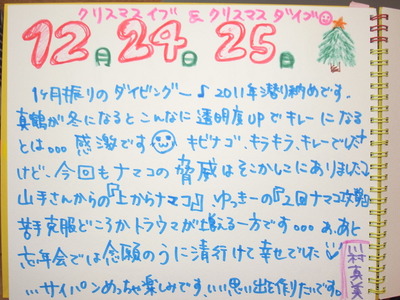 クリスマスイブ & クリスマスダイブ
12月24日25日
1ヶ月振りのダイビングー♪2011年潜り納めです。
真鶴が冬になるとこんなに透明度UPでキレーになる
とは。。。感激です キビナゴ、キラキラ、キレーでした
けど、今回もナマコの脅威はそこかしこにありました
山手さんからの『上からナマコ』ゆっきーの『2回ナマコ攻撃』
苦手克服どころかトラウマが増える一方です。。。あ、あと
忘年会では念願のうに清行けて幸せでした
...サイパンめっちゃ楽しみです、いい思い出を作りたいです。
川村真美